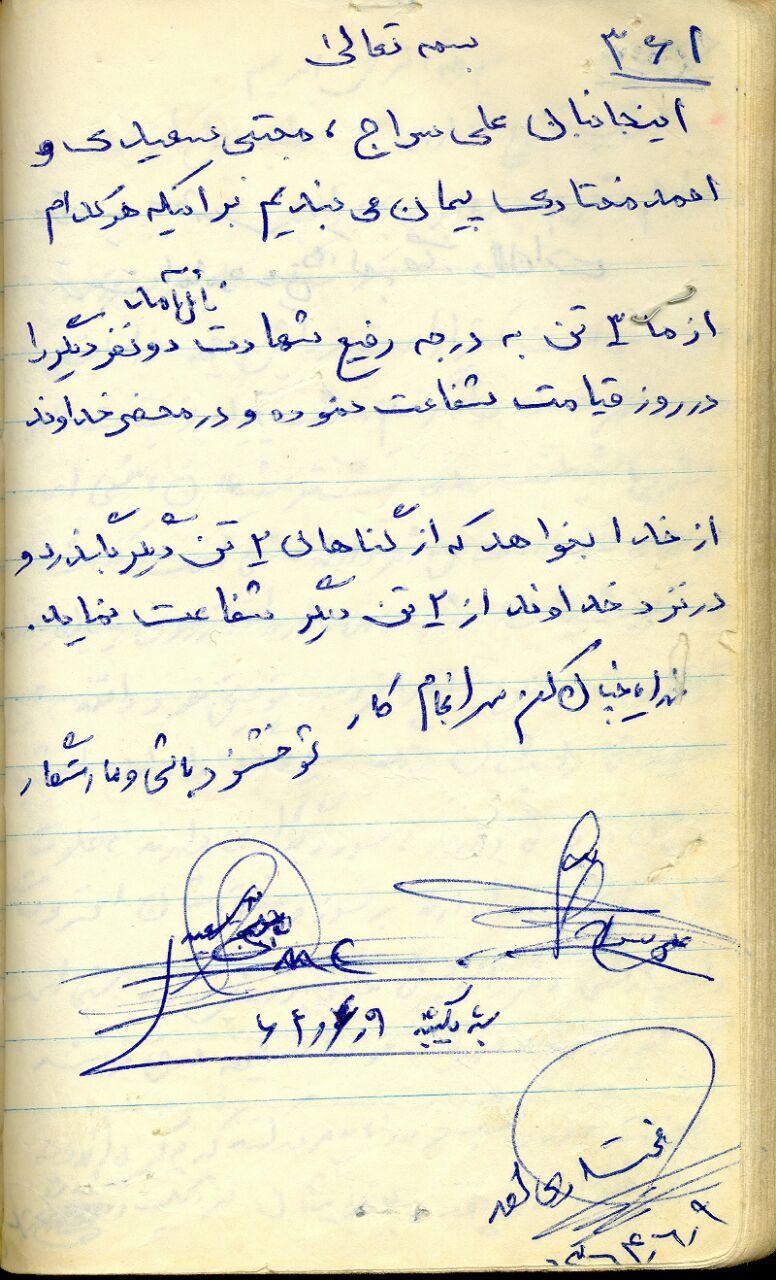 ۳۶۱
بسمه تعالی
اینجانبان علی سراج ، مجتبی سعیدی و
احمد مختاری پیمان می بندیم بر اینکه هر کدام
نائل آمد
از ما ۳ تن به درجه رفیع شهادت دو نفر دیگر را
در روز قیامت شفاعت نموده و در محضر خداوند
از خدا بخواهد که از گناهان ۲ تن دیگر بگذرد و
در نزد خداوند از ۲ تن دیگر شفاعت نماید.
خدایا چنان کن سرانجام کار
تو خشنود باشی و ما رستگار
علی سراج
شب یکشنبه
مختاری احمد